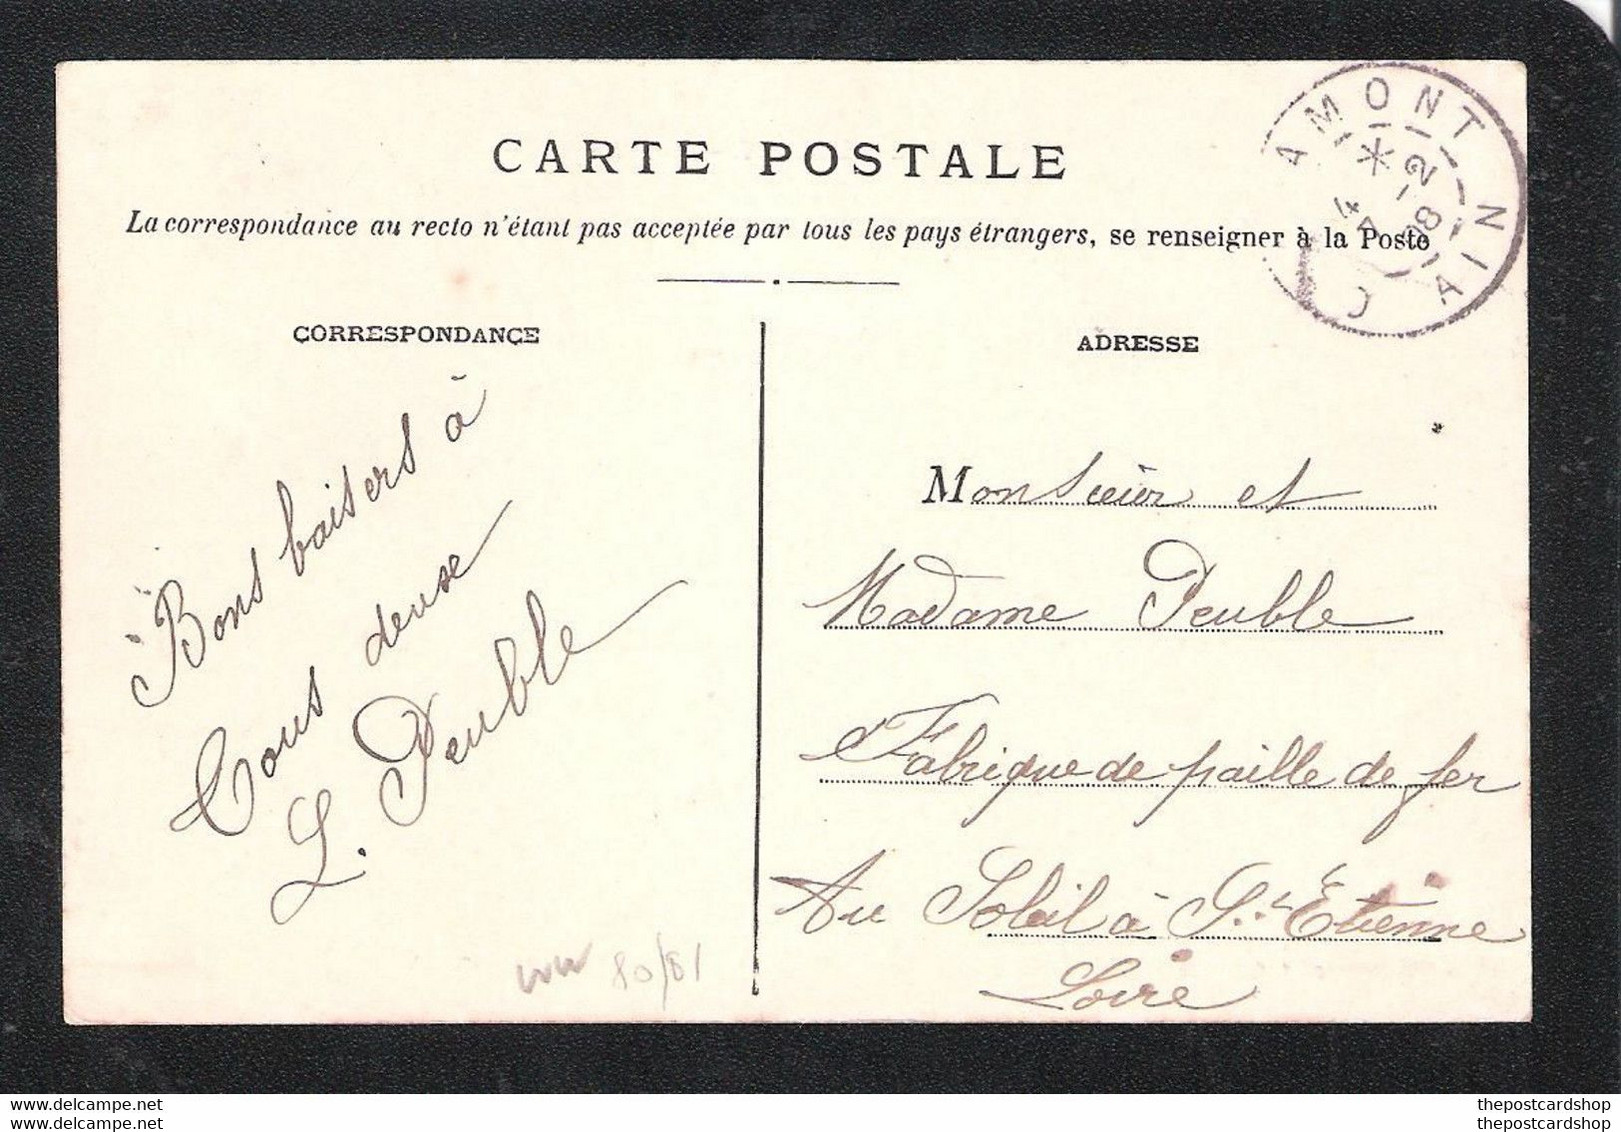 CARTE POSTALE
La correspondance au recto n'étant pas acceptée par tous les pays étrangers, se renseigner à la Poste
CORRESPONDANCE
Bons baisers à
Tous deuse
L. Peuble
80/81
ADRESSE
AMONT
AIN
Monsieur et
Madame Peuble
Fabrique de paille de fer
Au Soleil à St Etienne
Loire
www.delcampe.net
www.delcampe.net
thepostcardshop
thepostcardshop